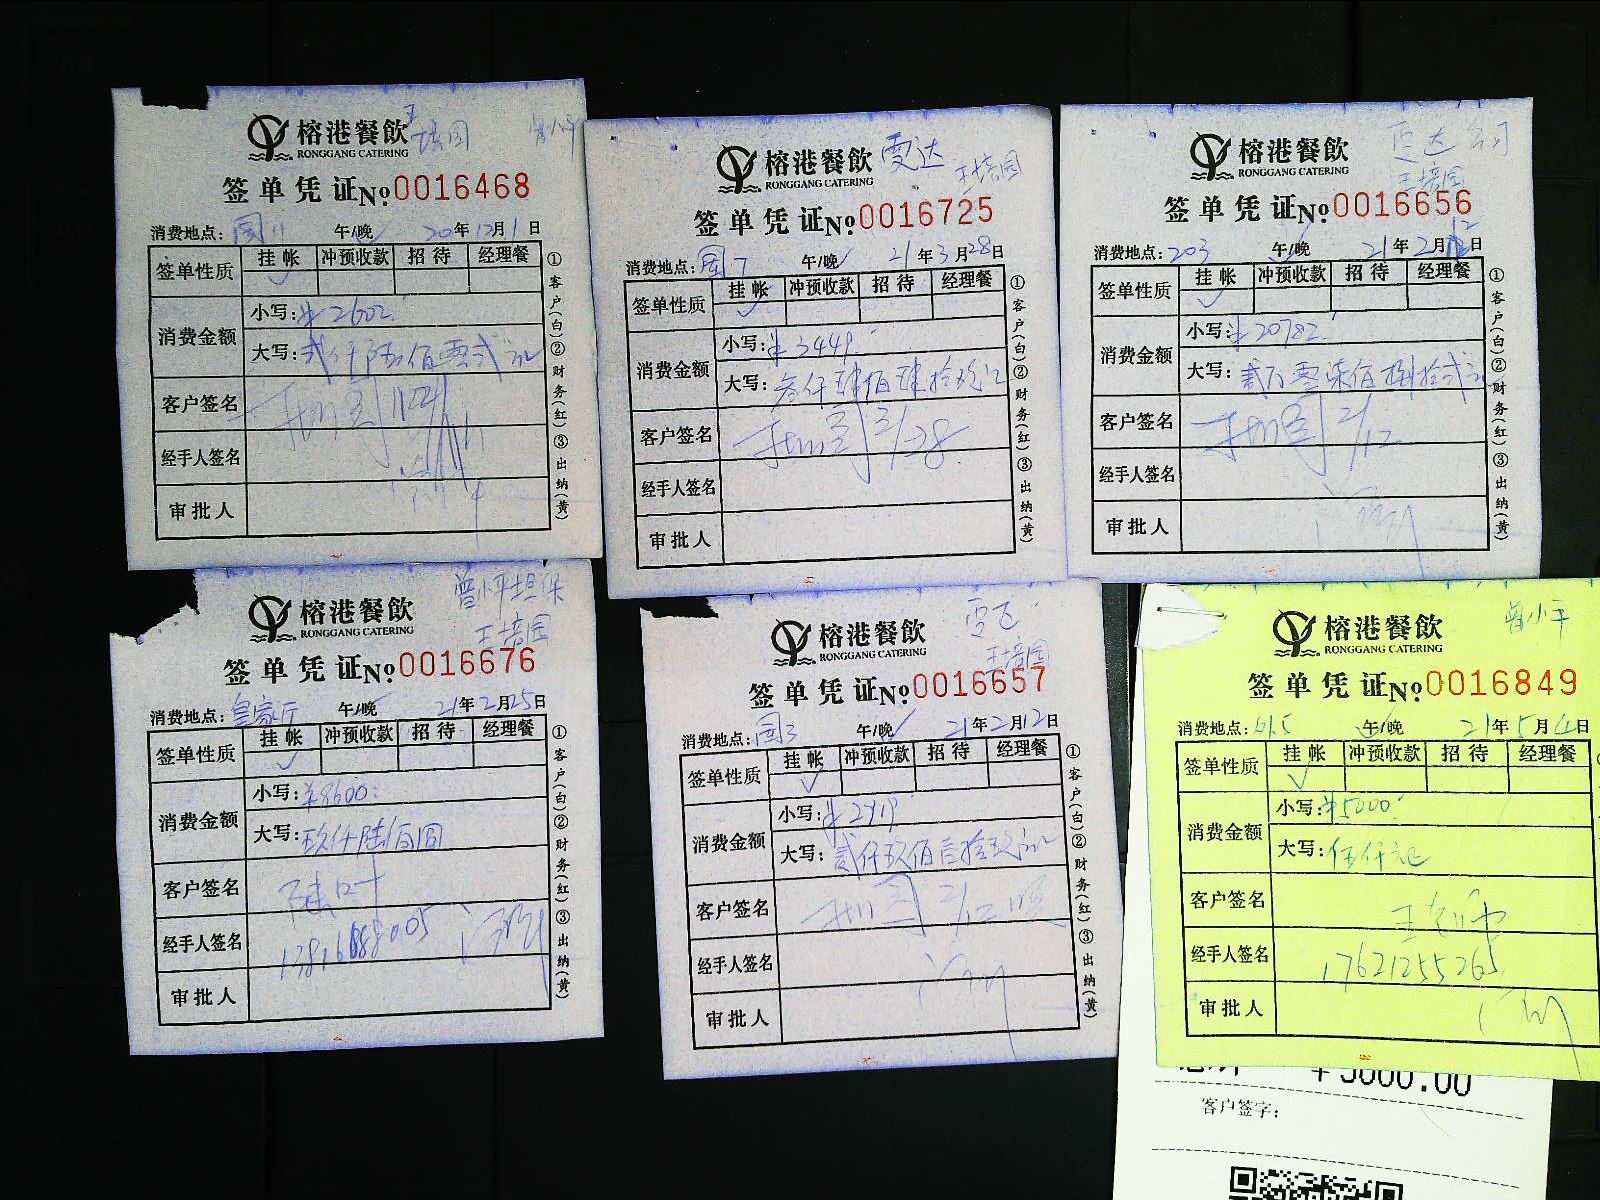 榕港餐飲
RONGGANG CATERING
王培园
曾小平
签单凭证No.0016468
消费地点: 园11 午/晚 20年12月1日
签单性质 挂帐 冲预收款 招待 经理餐
消费金额
小写:¥2602
大写:贰仟陆佰零贰元
客户签名
经手人签名
审批人
①客户(白)②财务(红)③出纳(黄)
榕港餐飲
RONGGANG CATERING
雯达
王培园
签单凭证No.0016725
消费地点: 园7 午/晚 21年3月28日
签单性质 挂帐 冲预收款 招待 经理餐
消费金额
小写:¥3449
大写:叁仟肆佰肆拾玖元
客户签名 3/28
经手人签名
审批人
①客户(白)②财务(红)③出纳(黄)
榕港餐飲
RONGGANG CATERING
达公司
王培园
签单凭证No.0016656
消费地点: 203 午/晚 21年2月12日
签单性质 挂帐 冲预收款 招待 经理餐
消费金额
小写:¥20782
大写:贰万零柒佰捌拾贰元
客户签名 2/12
经手人签名
审批人
①客户(白)②财务(红)③出纳(黄)
榕港餐飲
RONGGANG CATERING
曾小平担保
王培园
签单凭证No.0016676
消费地点: 皇家厅 午/晚 21年2月25日
签单性质 挂帐 冲预收款 招待 经理餐
消费金额
小写:¥8600
大写:玖仟陆佰圆
客户签名
经手人签名
审批人
①客户(白)②财务(红)③出纳(黄)
榕港餐飲
RONGGANG CATERING
王培园
签单凭证No.0016657
消费地点: 园3 午/晚 21年2月12日
签单性质 挂帐 冲预收款 招待 经理餐
消费金额
小写:¥2919
大写:贰仟玖佰壹拾玖元
客户签名 2/12
经手人签名
审批人
①客户(白)②财务(红)③出纳(黄)
榕港餐飲
RONGGANG CATERING
曾小平
签单凭证No.0016849
消费地点: 615 午/晚 21年5月4日
签单性质 挂帐 冲预收款 招待 经理餐
消费金额
小写:¥5000
大写:伍仟元
客户签名
经手人签名 17621255265
审批人
¥5000.00
客户签字: